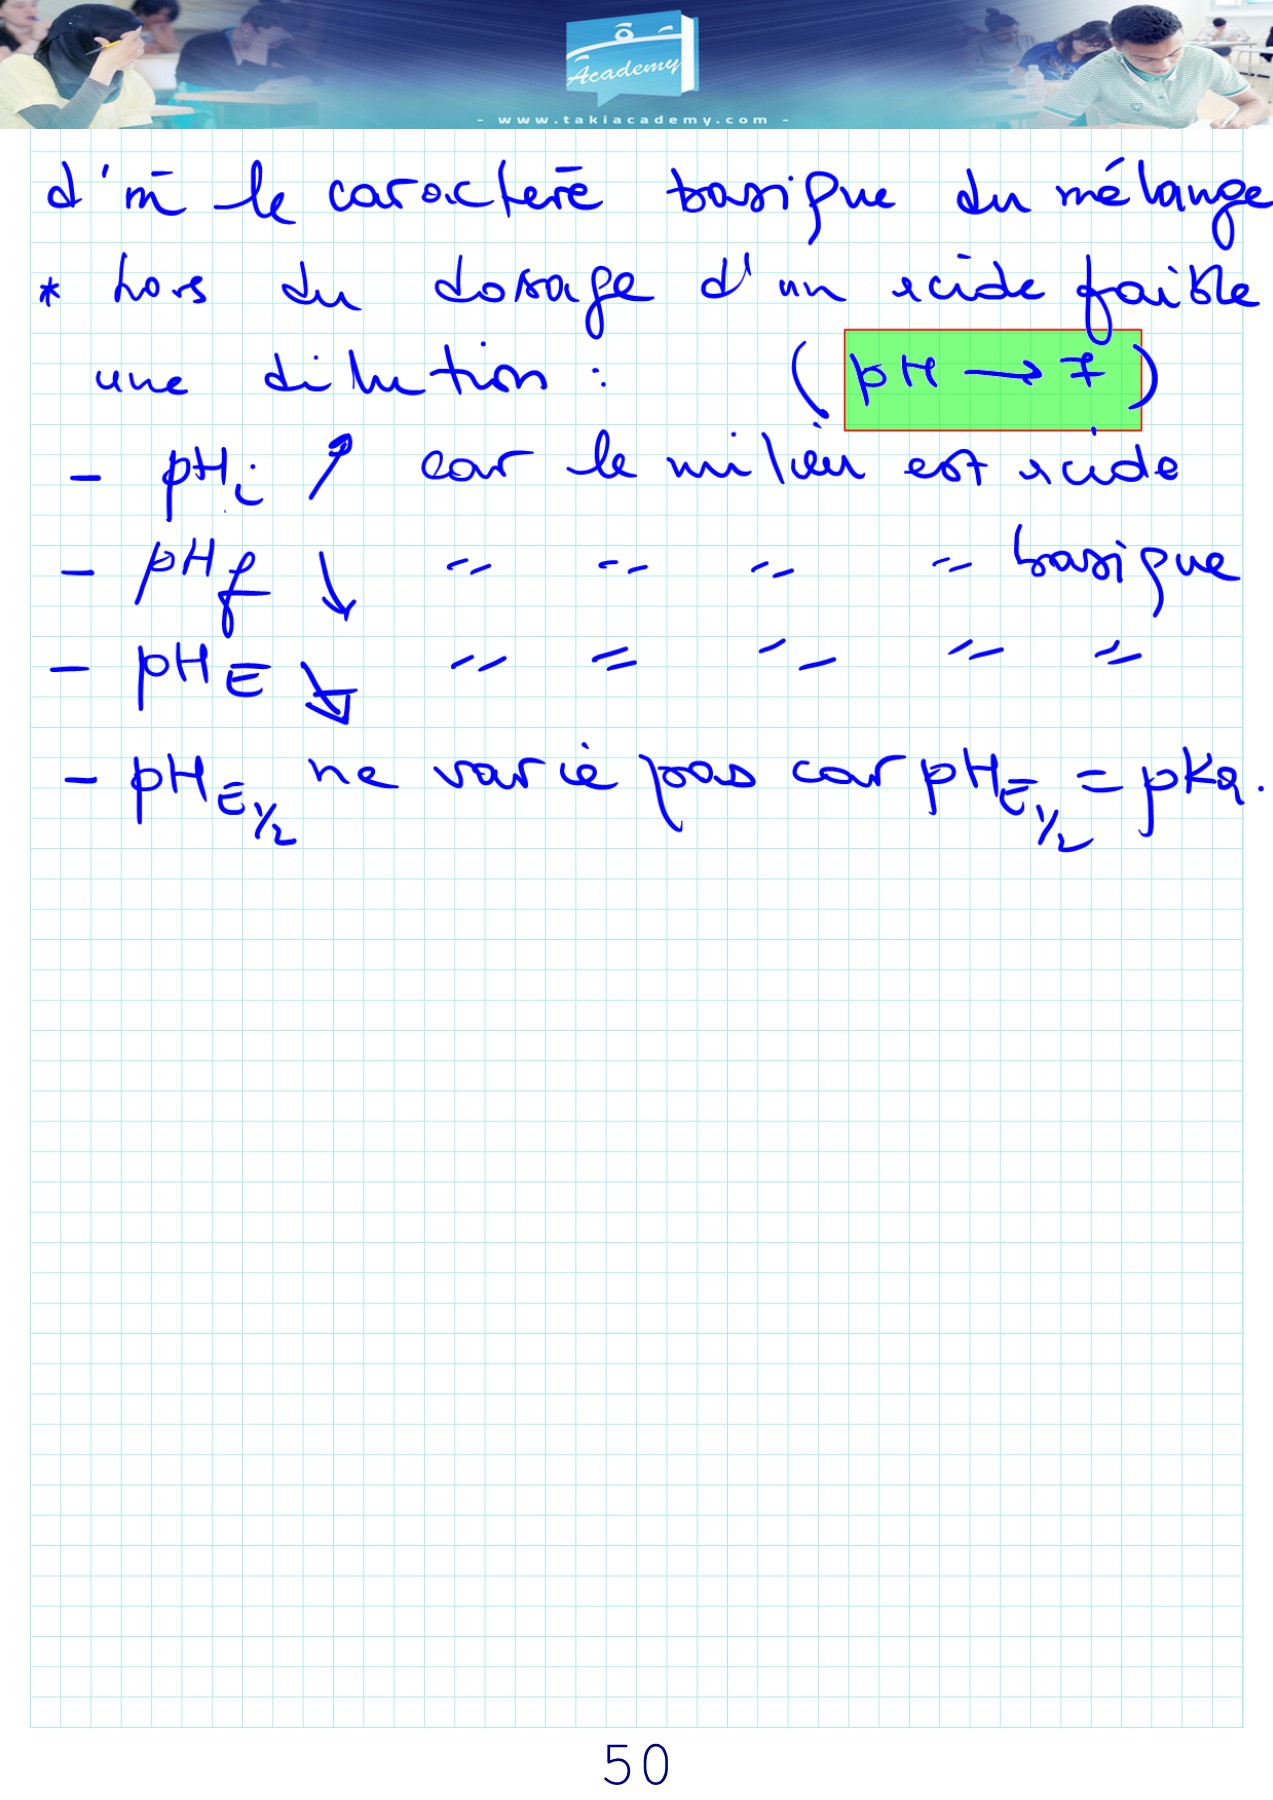 Academy
- www.takiacademy.com -
d'm̄ le caractère basique du mélange
* Lors du dosage d'un acide faible
une dilution : (pH → 7)
- pHi ↗ car le milieu est acide
- pHf ↘ " " " " basique
- pHE ↘ " " " " "
- pHE1/2 ne varie pas car pHE1/2 = pKa.
50